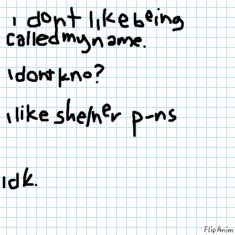 i dont like being
called my name.
I dont kno?
i like she/her p-ns
idk.
FlipAnim